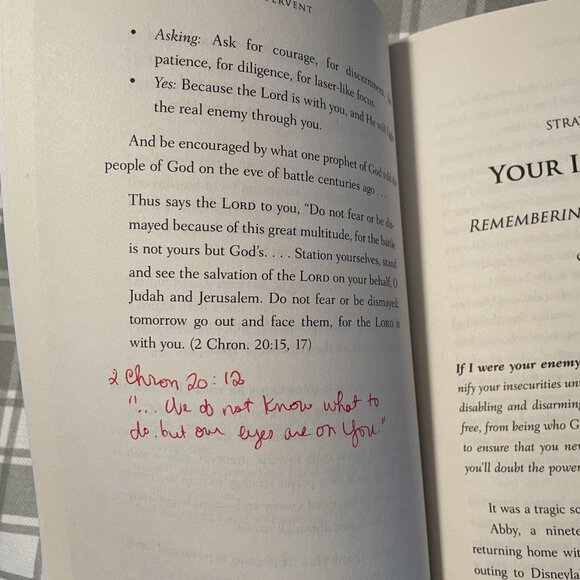 ERVENT
• Asking: Ask for courage, for discernment, for
patience, for diligence, for laser-like focus.
• Yes: Because the Lord is with you, and He will fight
the real enemy through you.
And be encouraged by what one prophet of God told the
people of God on the eve of battle centuries ago . . .
Thus says the LORD to you, “Do not fear or be dis-
mayed because of this great multitude, for the battle
is not yours but God’s. . . . Station yourselves, stand
and see the salvation of the LORD on your behalf, O
Judah and Jerusalem. Do not fear or be dismayed;
tomorrow go out and face them, for the LORD is
with you. (2 Chron. 20:15, 17)
2 Chron 20:12
"... We do not know what to
do, but our eyes are on You."
STRA
YOUR I
REMEMBERIN
If I were your enemy
nify your insecurities un
disabling and disarming
free, from being who G
to ensure that you nev
you'll doubt the power
It was a tragic sc
Abby, a ninete
returning home wit
outing to Disneyla